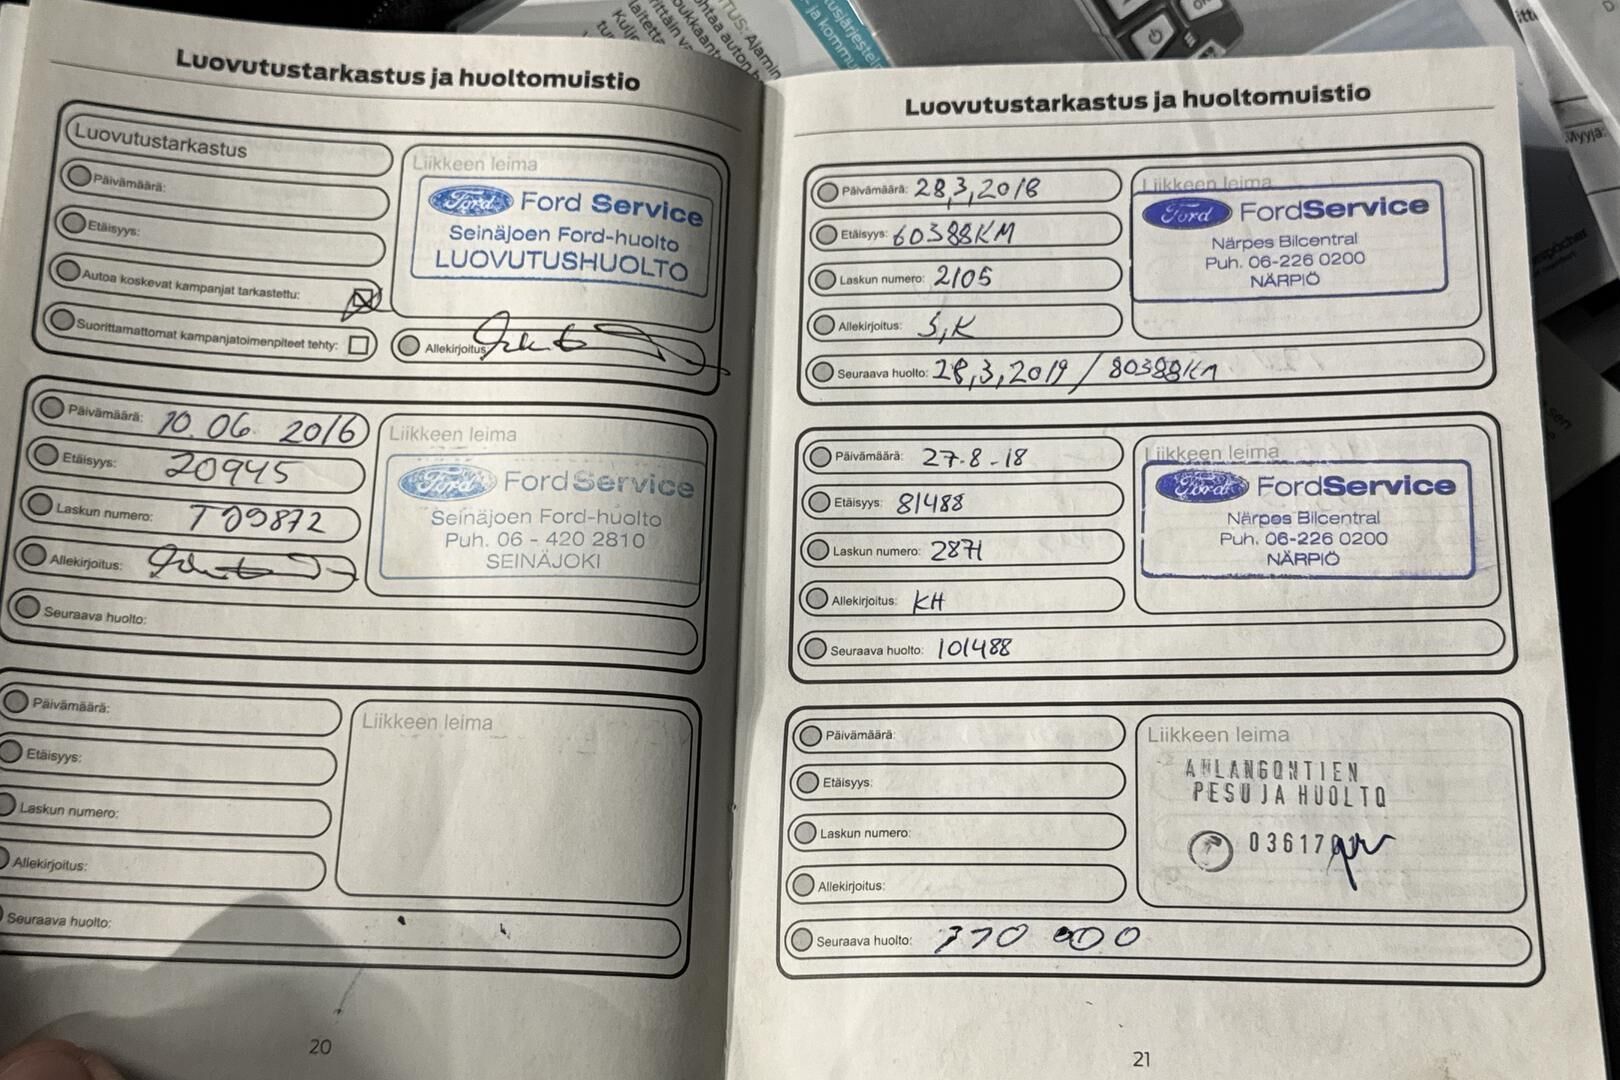 Luovutustarkastus ja huoltomuistio
Luovutustarkastus
Päivämäärä:
Etäisyys:
Autoa koskevat kampanjat tarkastettu:
Suorittamattomat kampanjatoimenpiteet tehty:
Liikkeen leima
Ford Ford Service
Seinäjoen Ford-huolto
LUOVUTUSHUOLTO
Allekirjoitus:
Päivämäärä: 10.06 2016
Etäisyys: 20945
Laskun numero: T09872
Allekirjoitus:
Seuraava huolto:
Liikkeen leima
Ford FordService
Seinäjoen Ford-huolto
Puh. 06 - 420 2810
SEINÄJOKI
Päivämäärä:
Etäisyys:
Laskun numero:
Allekirjoitus:
Seuraava huolto:
Liikkeen leima
20
Luovutustarkastus ja huoltomuistio
Päivämäärä: 28,3,2018
Etäisyys: 60388KM
Laskun numero: 2105
Allekirjoitus: S,K
Seuraava huolto: 28,3,2019 / 80388KM
Liikkeen leima
Ford FordService
Närpes Bilcentral
Puh. 06-226 0200
NÄRPIÖ
Päivämäärä: 27-8-18
Etäisyys: 81488
Laskun numero: 2871
Allekirjoitus: KH
Seuraava huolto: 101488
Liikkeen leima
Ford FordService
Närpes Bilcentral
Puh. 06-226 0200
NÄRPIÖ
Päivämäärä:
Etäisyys:
Laskun numero:
Allekirjoitus:
Seuraava huolto:
Liikkeen leima
AHLANGONTIEN
PESU JA HUOLTO
21
Myyjä: